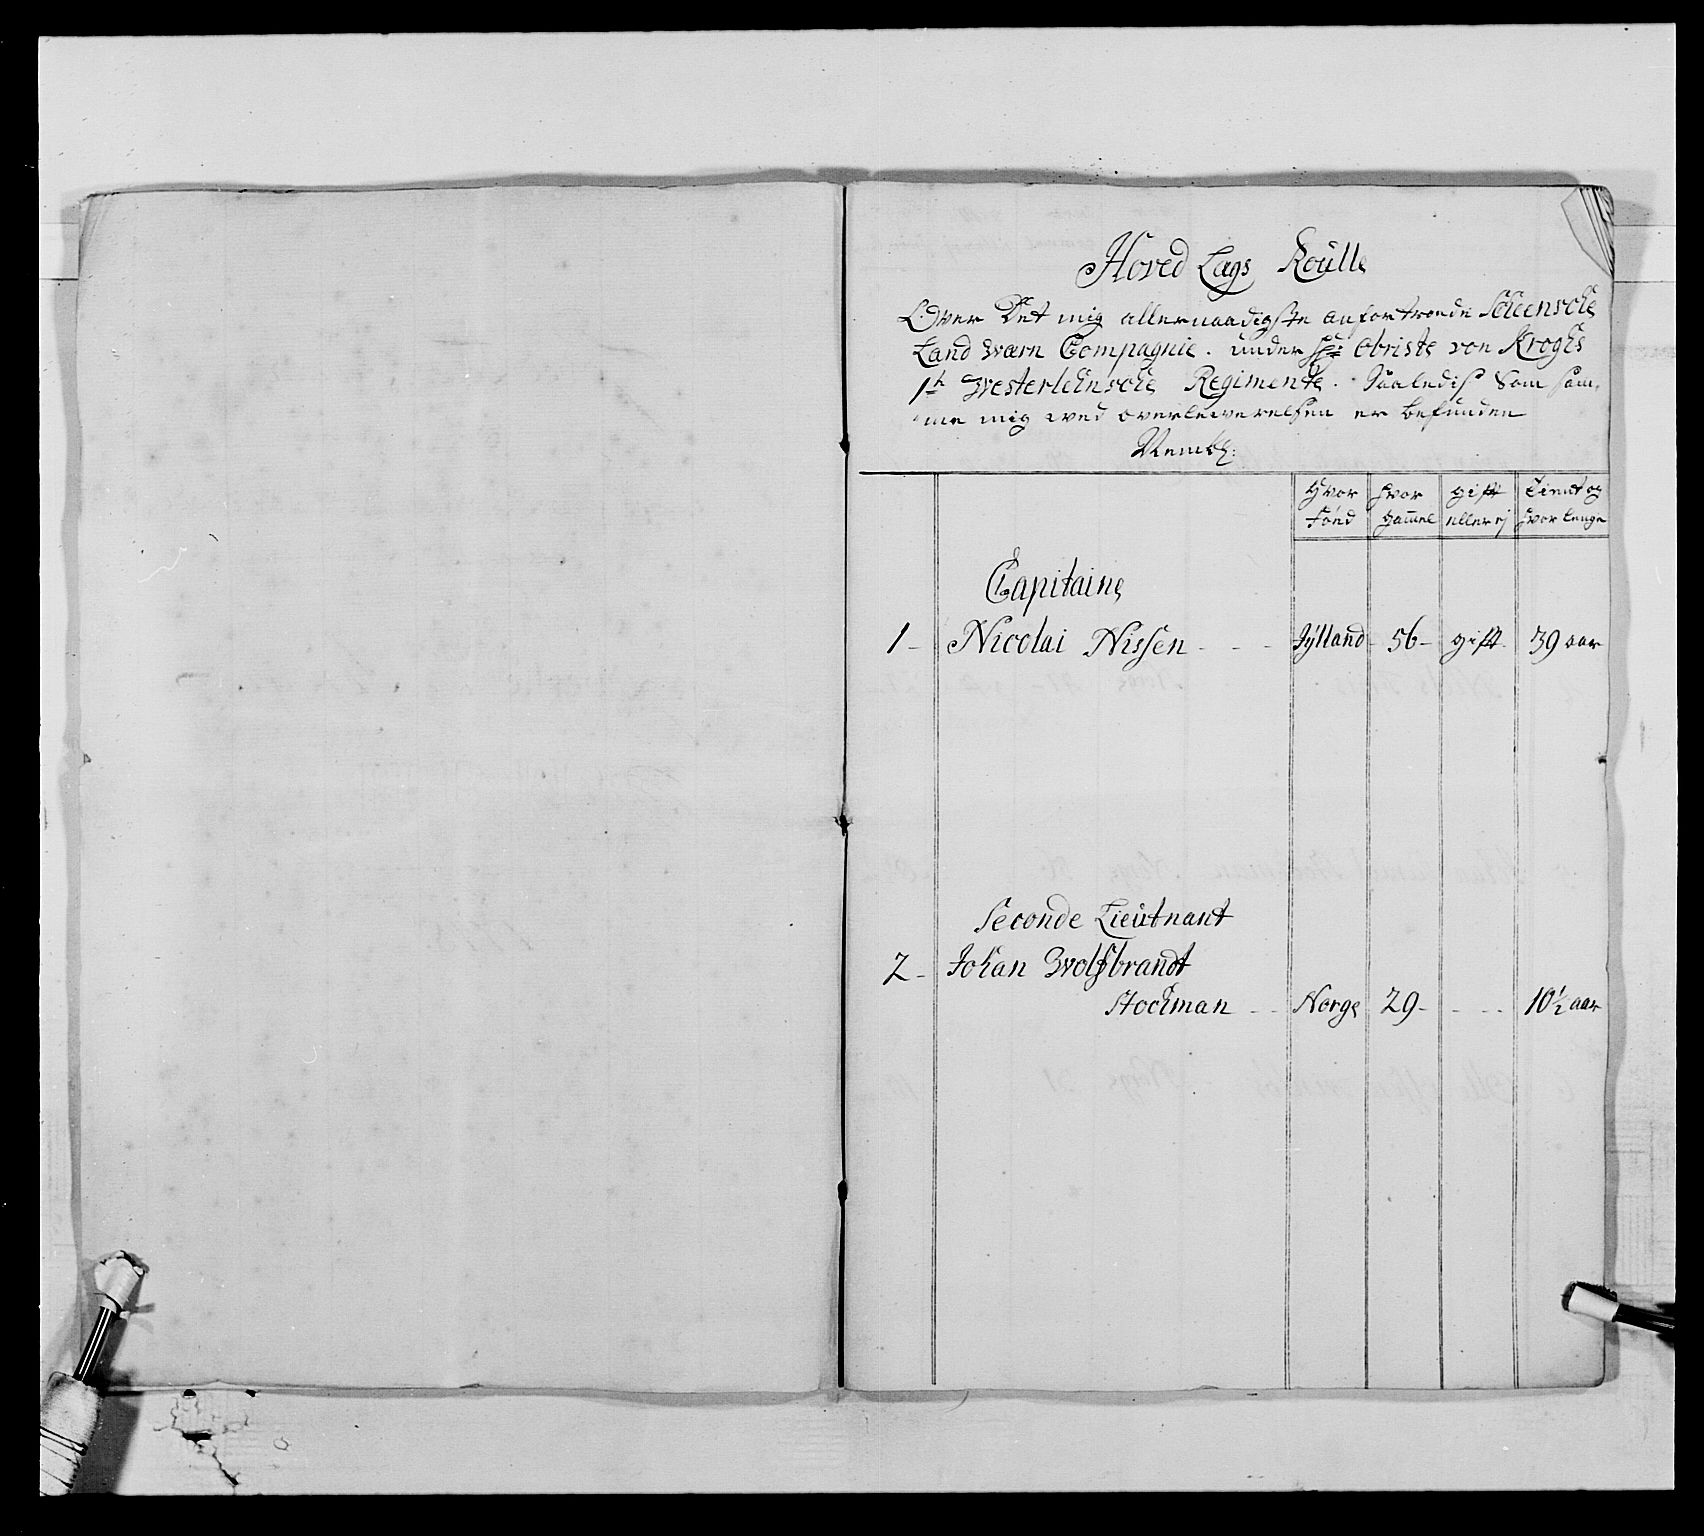 Hoved Lags Roulle
Over Det mig allernaadigste anfortroede Scheensche
Land Wærn Compagnie. under Hr: Obriste von Kroghs
1te Westerlehnsche Regimente. Saaledis Som sam„
me mig wed overlewerelsen er befunden
Nembl:
Hvor født
Hvor gamel
gift eller ej
Tient og hvor lenge
Capitaine
1- Nicolai Nissen - - - Jylland- 56- gift- 39 aar
Seconde Lieutnant
2- Johan Wolfbrandt
Stochman - - Norge 29- - - - 10½ aar